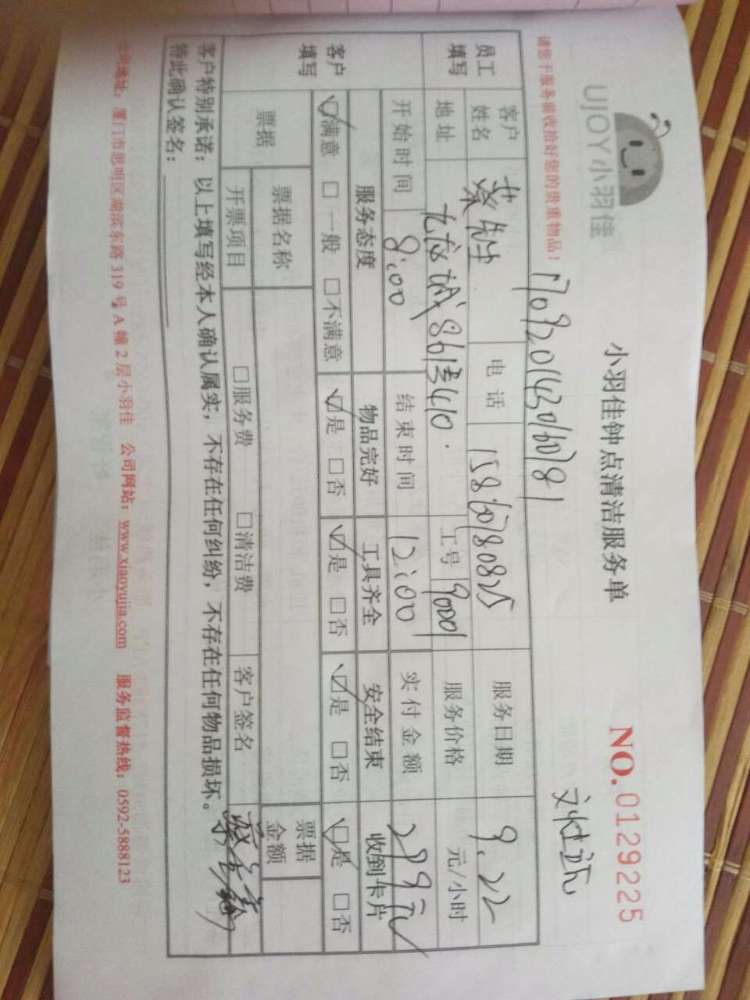 UJOY小羽佳
小羽佳钟点清洁服务单
NO.0129225
请您于服务前收拾好您的贵重物品!
1709201430160781
员工填写
客户姓名 蔡先生 电话 15860780825 服务日期 9.22
地址 861号410. 工号 90001 服务价格 元/小时
开始时间 8:00 结束时间 12:00 实付金额 299元
客户填写
服务态度 物品完好 工具齐全 安全结束 收到卡片
☑满意 □一般 □不满意 ☑是 □否 ☑是 □否 ☑是 □否 ☑是 □否
票据 票据名称 票据金额
开票项目 □服务费 □清洁费 客户签名
客户特别承诺:以上填写经本人确认属实,不存在任何纠纷,不存在任何物品损坏。
特此确认签名:
公司地址:厦门市思明区湖滨东路319号A幢2层小羽佳 公司网站:www.xiaoyujia.com 服务监督热线:0592-5888123